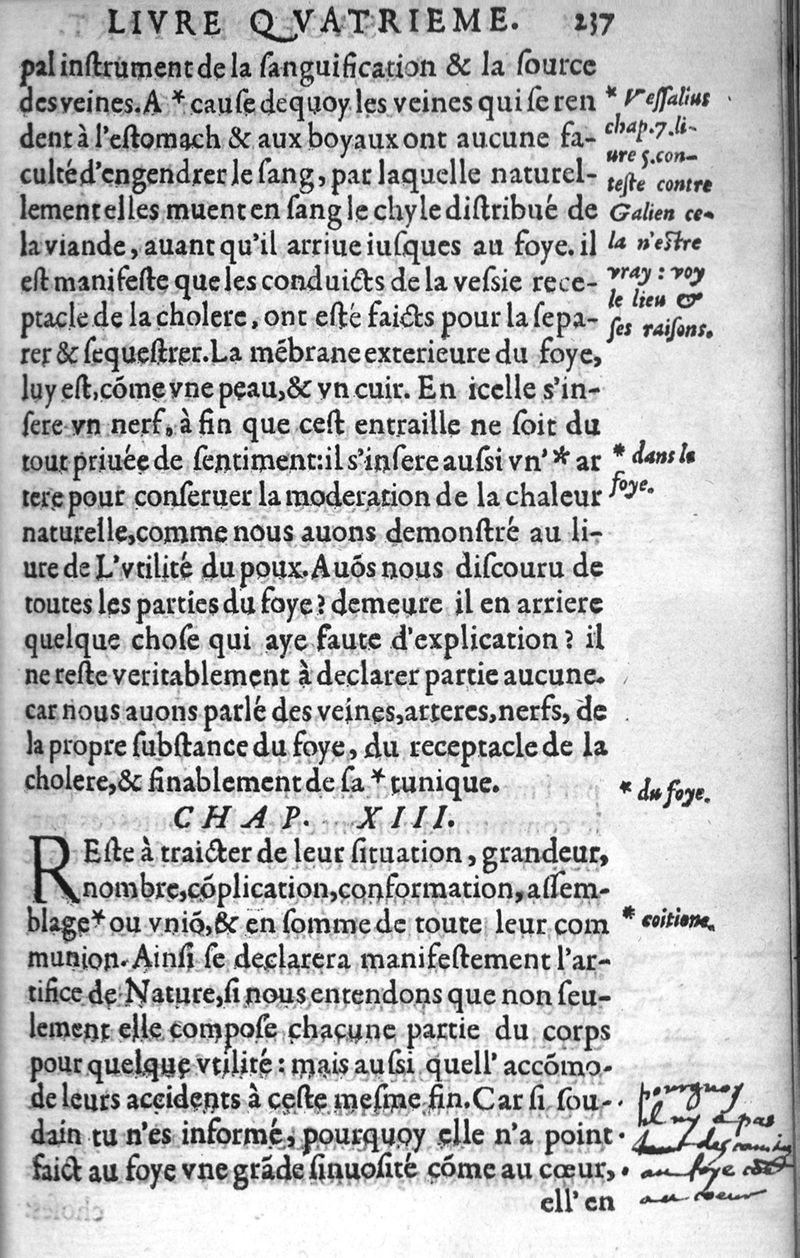 LIVRE QVATRIEME. 237
pal inſtrument de la ſanguification & la ſource
des veines. A * cauſe dequoy les veines qui ſe ren
dent à l'eſtomach & aux boyaux ont aucune fa-
culté d'engendrer le ſang, par laquelle naturel-
lement elles muent en ſang le chyle diſtribué de
la viande, auant qu'il arriue iuſques au foye. il
eſt manifeſte que les conduicts de la veſsie rece-
ptacle de la cholere, ont eſté faicts pour la ſepa-
rer & ſequeſtrer. La mẽbrane exterieure du foye,
luy eſt, cõme vne peau, & vn cuir. En icelle s'in-
ſere vn nerf, à fin que ceſt entraille ne ſoit du
tout priuée de ſentiment: il s'inſere auſsi vn' * ar
tere pour conſeruer la moderation de la chaleur
naturelle, comme nous auons demonſtré au li-
ure de L'vtilité du poux. Auõs nous diſcouru de
toutes les parties du foye? demeure il en arriere
quelque choſe qui aye faute d'explication? il
ne reſte veritablement à declarer partie aucune.
car nous auons parlé des veines, arteres, nerfs, de
la propre ſubſtance du foye, du receptacle de la
cholere, & finablement de ſa * tunique.
* Veſſalius
chap. 7. li-
ure 5. con-
teſte contre
Galien ce-
la n'eſtre
vray : voy
le lieu &
ſes raiſons.
* dans le
foye.
* du foye.
CHAP. XIII.
REſte à traicter de leur ſituation, grandeur,
nombre, cõplication, conformation, aſſem-
blage * ou vniõ, & en ſomme de toute leur com
munion. Ainſi ſe declarera manifeſtement l'ar-
tifice de Nature, ſi nous entendons que non ſeu-
lement elle compoſe chacune partie du corps
pour quelque vtilité : mais auſsi quell' accõmo-
de leurs accidents à ceſte meſme fin. Car ſi ſou-
dain tu n'es informé, pourquoy elle n'a point
faict au foye vne grãde ſinuoſité cõme au cœur,
ell' en
* coitione.
pourquoy
il ny a pas
au foye
au coeur